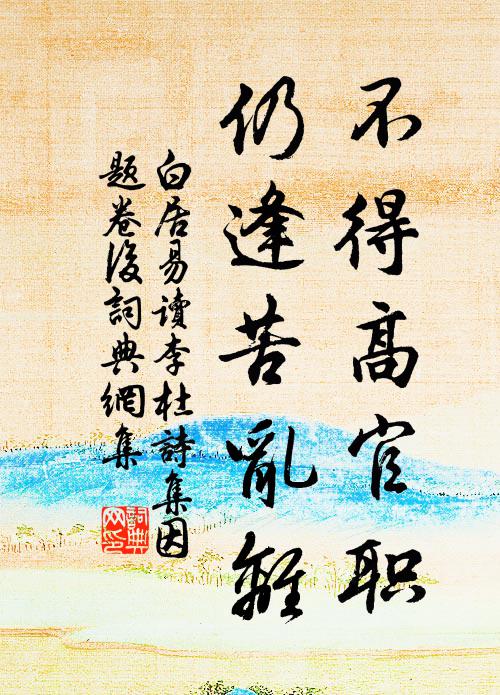 不得高官职
仍逢苦亂離
白居易讀李杜詩集因
題卷後詞典網集
詞典
网印